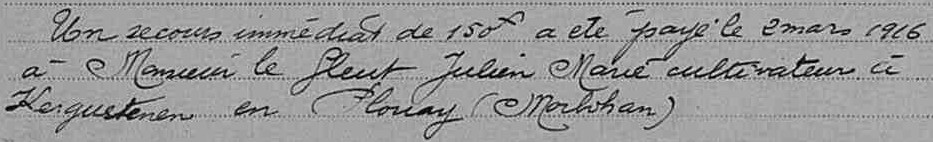 Un secours immédiat de 150f a été payé le 2 mars 1916
à Monsieur le Gleut Julien Marie cultivateur à
Kerguestenen en Plouay (Morbihan)